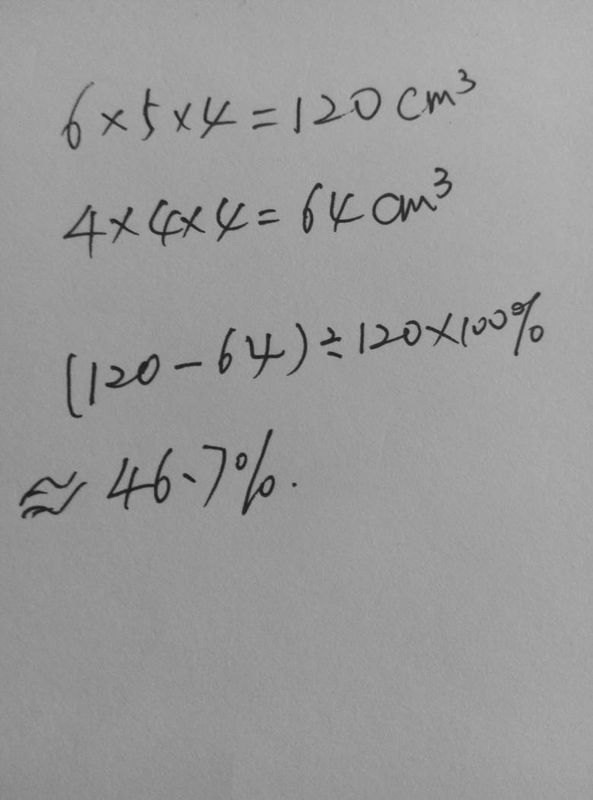 6×5×4=120cm³
4×4×4=64cm³
(120-64)÷120×100%
≈46.7%.